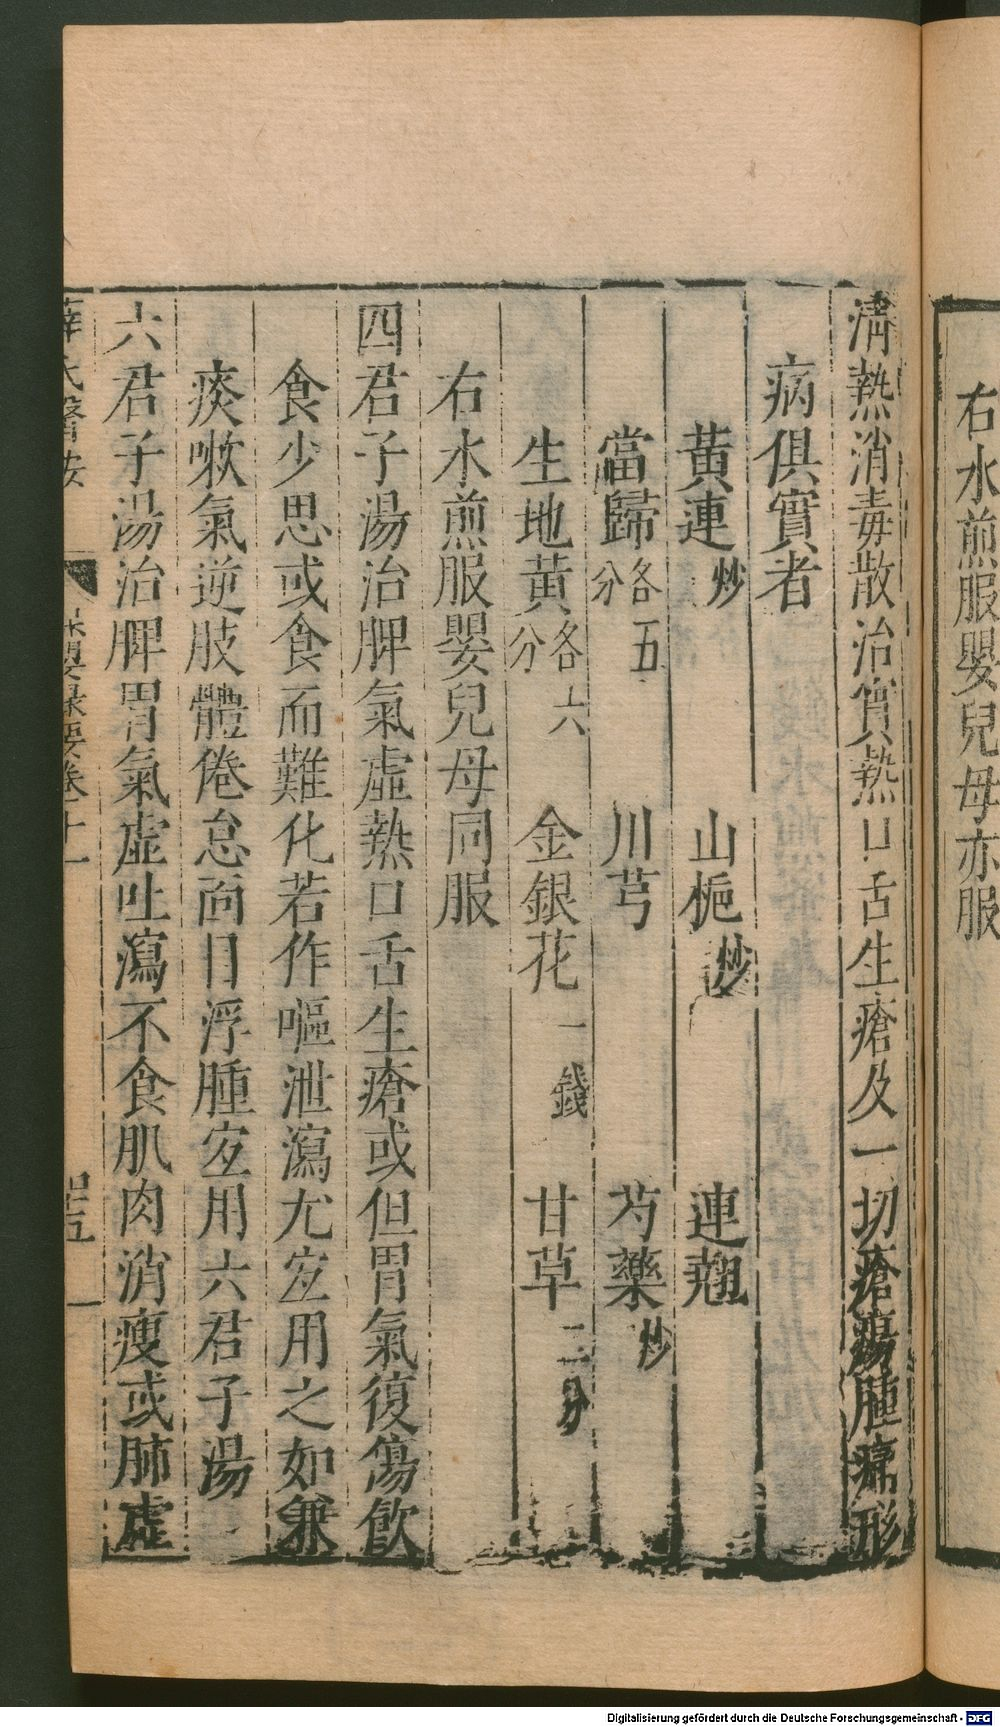 右水煎服嬰兒母亦服
清熱消毒散治實熱口舌生瘡及一切瘡瘍腫痛形
病俱實者
黃連炒 山梔炒 連翹
當歸各五分 川芎 芍藥炒
生地黃各六分 金銀花一錢 甘草二分
右水煎服嬰兒母同服
四君子湯治脾氣虛熱口舌生瘡或但胃氣復傷飲
食少思或食而難化若作嘔泄瀉尤宐用之如兼
痰嗽氣逆肢體倦怠面目浮腫宐用六君子湯
六君子湯治脾胃氣虛吐瀉不食肌肉消瘦或肺虛
薛氏醫按 保嬰撮要卷十一
Digitalisierung gefördert durch die Deutsche Forschungsgemeinschaft - DFG